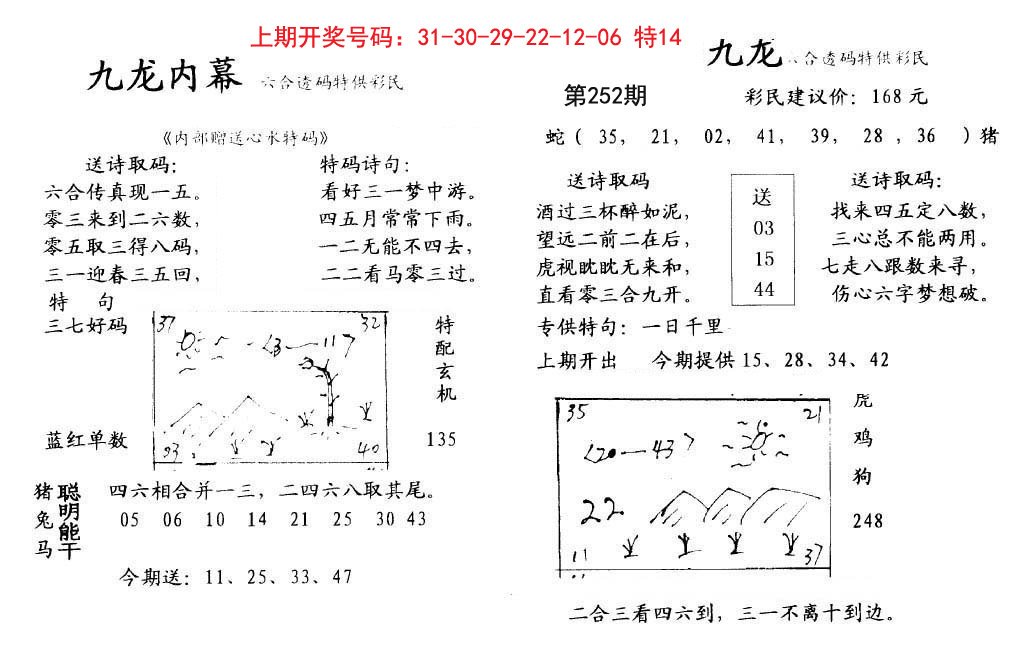 上期开奖号码：31-30-29-22-12-06 特14
九龙内幕 六合透码特供彩民
《内部赠送心水特码》
送诗取码：
六合传真现一五。
零三来到二六数，
零五取三得八码，
三一迎春三五回，
特码诗句：
看好三一梦中游。
四五月常常下雨。
一二无能不四去，
二二看马零三过。
特 句
三七好码
蓝红单数
37 32
〈3—11〉
03 40
特配玄机
135
猪兔马
聪明能干
四六相合并一三，二四六八取其尾。
05 06 10 14 21 25 30 43
今期送：11、25、33、47
九龙 六合透码特供彩民
第252期 彩民建议价：168元
蛇（ 35， 21， 02， 41， 39， 28 ，36 ）猪
送诗取码
酒过三杯醉如泥，
望远二前二在后，
虎视眈眈无来和，
直看零三合九开。
送
03
15
44
送诗取码：
找来四五定八数，
三心总不能两用。
七走八跟数来寻，
伤心六字梦想破。
专供特句：一日千里
上期开出 今期提供15、28、34、42
35 21
〈20—43〉
22
11 37
虎
鸡
狗
248
二合三看四六到，三一不离十到边。